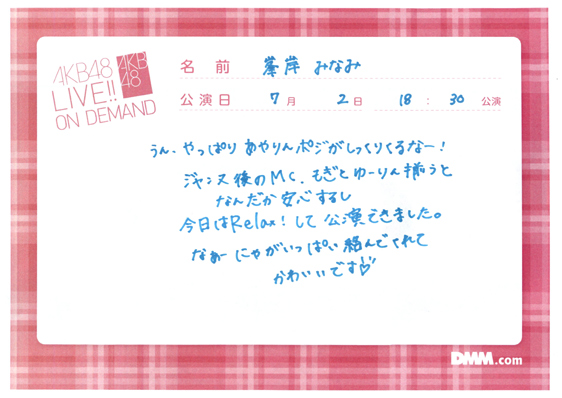 AKB48
LIVE!!
ON DEMAND
AKB
48
名前 峯岸 みなみ
公演日 7月 2日 18:30 公演
うん、やっぱり あやりんポジがしっくりくるなー!
ジャンヌ後のMC、もぎとゆーりん揃うと
なんだか安心するし
今日はRelax!して公演できました。
なぁーにゃがいっぱい絡んでくれて
かわいいです♡
DMM.com